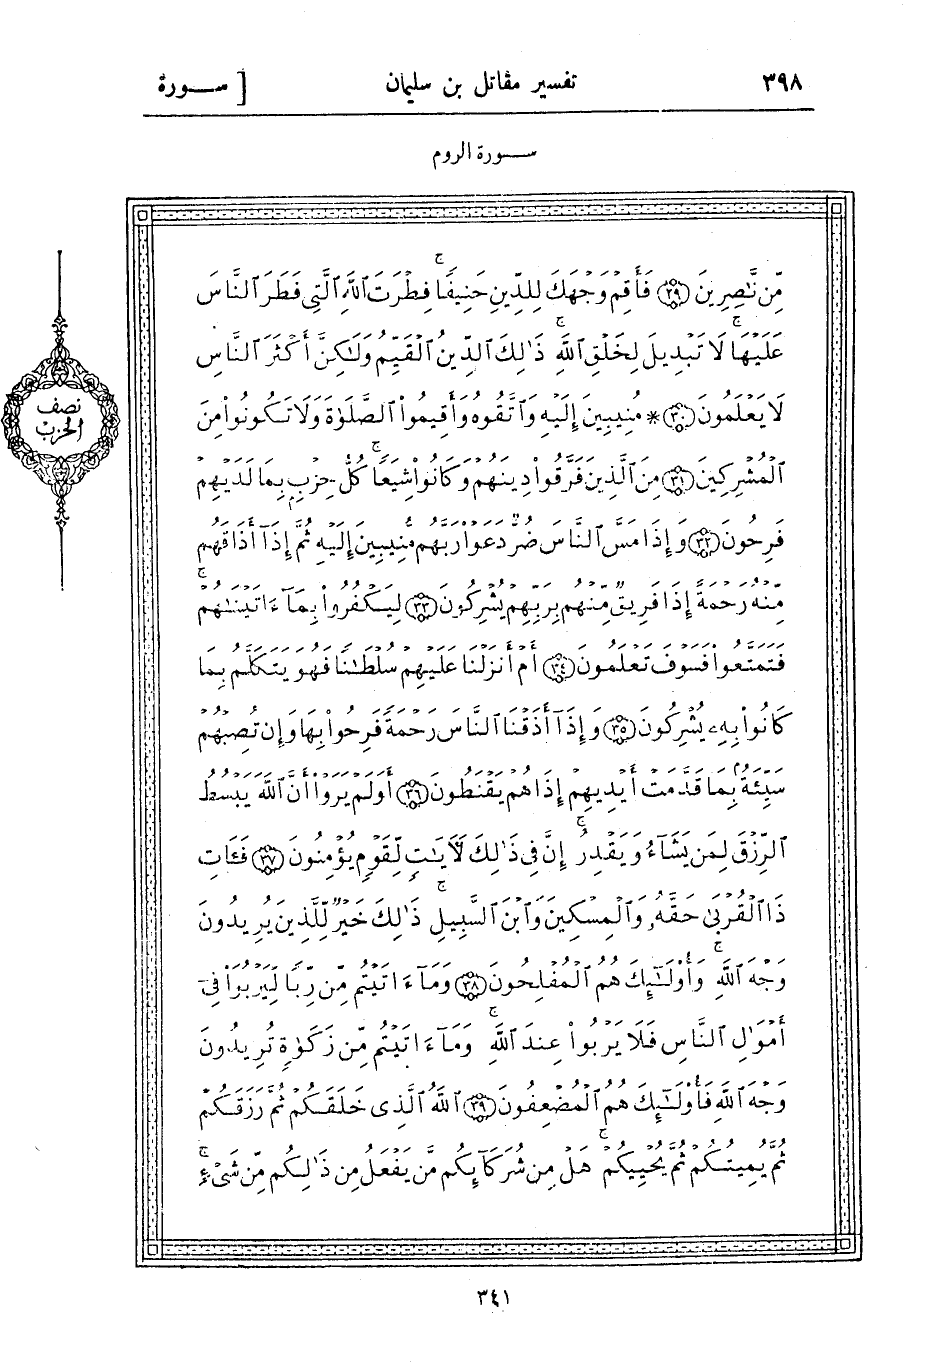 ٣٩٨ تفسير مقاتل بن سليمان [ ســـورة
ســـورة الروم
مِّن نَّٰصِرِينَ ﴿٢٩﴾ فَأَقِمْ وَجْهَكَ لِلدِّينِ حَنِيفًاۚ فِطْرَتَ ٱللَّهِ ٱلَّتِى فَطَرَ ٱلنَّاسَ
عَلَيْهَاۚ لَا تَبْدِيلَ لِخَلْقِ ٱللَّهِۚ ذَٰلِكَ ٱلدِّينُ ٱلْقَيِّمُ وَلَٰكِنَّ أَكْثَرَ ٱلنَّاسِ
لَا يَعْلَمُونَ ﴿٣٠﴾ * مُنِيبِينَ إِلَيْهِ وَٱتَّقُوهُ وَأَقِيمُواْ ٱلصَّلَوٰةَ وَلَا تَكُونُواْ مِنَ
ٱلْمُشْرِكِينَ ﴿٣١﴾ مِنَ ٱلَّذِينَ فَرَّقُواْ دِينَهُمْ وَكَانُواْ شِيَعًاۚ كُلُّ حِزْبِۭ بِمَا لَدَيْهِمْ
فَرِحُونَ ﴿٣٢﴾ وَإِذَا مَسَّ ٱلنَّاسَ ضُرٌّ دَعَوْاْ رَبَّهُم مُّنِيبِينَ إِلَيْهِ ثُمَّ إِذَآ أَذَاقَهُم
مِّنْهُ رَحْمَةً إِذَا فَرِيقٌ مِّنْهُم بِرَبِّهِمْ يُشْرِكُونَ ﴿٣٣﴾ لِيَكْفُرُواْ بِمَآ ءَاتَيْنَٰهُمْۚ
فَتَمَتَّعُواْ فَسَوْفَ تَعْلَمُونَ ﴿٣٤﴾ أَمْ أَنزَلْنَا عَلَيْهِمْ سُلْطَٰنًا فَهُوَ يَتَكَلَّمُ بِمَا
كَانُواْ بِهِۦ يُشْرِكُونَ ﴿٣٥﴾ وَإِذَآ أَذَقْنَا ٱلنَّاسَ رَحْمَةً فَرِحُواْ بِهَا وَإِن تُصِبْهُمْ
سَيِّئَةُۢ بِمَا قَدَّمَتْ أَيْدِيهِمْ إِذَا هُمْ يَقْنَطُونَ ﴿٣٦﴾ أَوَلَمْ يَرَوْاْ أَنَّ ٱللَّهَ يَبْسُطُ
ٱلرِّزْقَ لِمَن يَشَآءُ وَيَقْدِرُۚ إِنَّ فِى ذَٰلِكَ لَأَيَٰتٍ لِّقَوْمٍ يُؤْمِنُونَ ﴿٣٧﴾ فَـَٔاتِ
ذَا ٱلْقُرْبَىٰ حَقَّهُۥ وَٱلْمِسْكِينَ وَٱبْنَ ٱلسَّبِيلِۚ ذَٰلِكَ خَيْرٌ لِّلَّذِينَ يُرِيدُونَ
وَجْهَ ٱللَّهِۚ وَأُوْلَٰٓئِكَ هُمُ ٱلْمُفْلِحُونَ ﴿٣٨﴾ وَمَآ ءَاتَيْتُم مِّن رِّبًا لِّيَرْبُوَاْ فِىٓ
أَمْوَٰلِ ٱلنَّاسِ فَلَا يَرْبُواْ عِندَ ٱللَّهِۚ وَمَآ ءَاتَيْتُم مِّن زَكَوٰةٍ تُرِيدُونَ
وَجْهَ ٱللَّهِ فَأُوْلَٰٓئِكَ هُمُ ٱلْمُضْعِفُونَ ﴿٣٩﴾ ٱللَّهُ ٱلَّذِى خَلَقَكُمْ ثُمَّ رَزَقَكُمْ
ثُمَّ يُمِيتُكُمْ ثُمَّ يُحْيِيكُمْۚ هَلْ مِن شُرَكَآئِكُم مَّن يَفْعَلُ مِن ذَٰلِكُم مِّن شَىْءٍۚ
نصف
الحزب
٣٤١